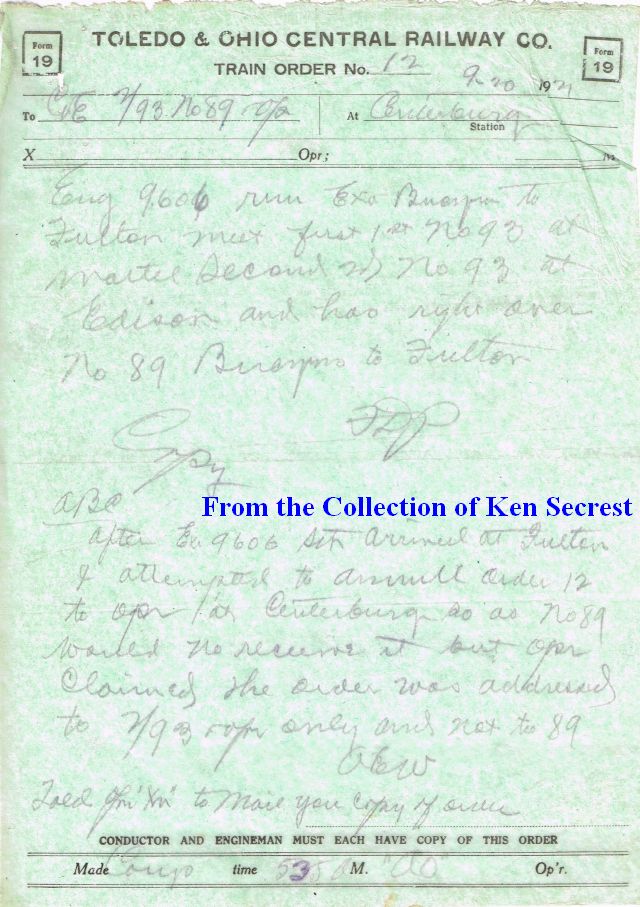 Form
19
TOLEDO & OHIO CENTRAL RAILWAY CO.
Form
19
TRAIN ORDER No. 12
9-20 1921
To C&E 2/93 No 89 opr
At Centerburg
Station
X Opr; M.
Eng 9606 run Exa Bucyrus to
Fulton meet first 1st No 93 at
Martel Second 2nd No 93 at
Edison and has right over
No 89 Bucyrus to Fulton
Copy
ABC
From the Collection of Ken Secrest
After Ex 9606 Sth arrived at Fulton
I attempted to annull order 12
to opr at Centerburg so as No 89
would no receive it but opr
Claimed the order was addressed
to 2/93 opr only and not to 89
OEW
Told Opr to Mail you Copy of order
CONDUCTOR AND ENGINEMAN MUST EACH HAVE COPY OF THIS ORDER
Made Comp time M. Op'r.